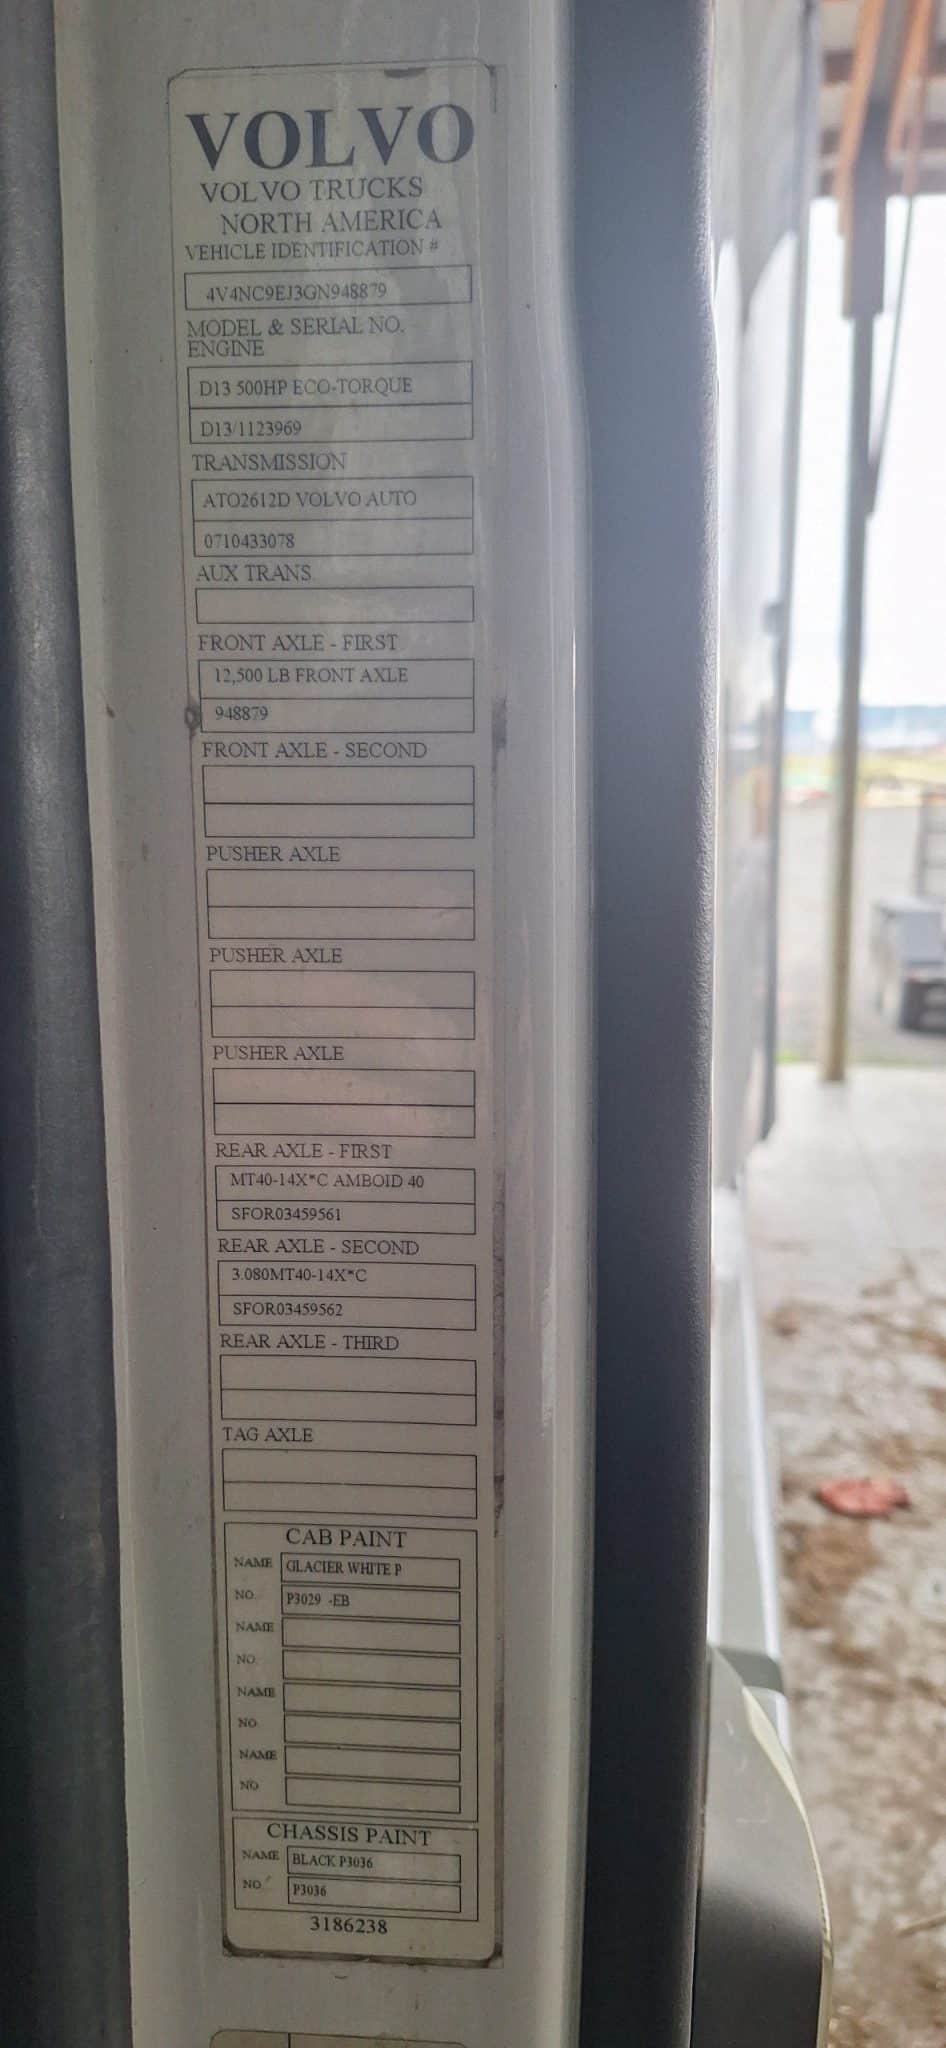 VOLVO
VOLVO TRUCKS
NORTH AMERICA
VEHICLE IDENTIFICATION #
4V4NC9EJ3GN948879
MODEL & SERIAL NO.
ENGINE
D13 500HP ECO-TORQUE
D13/1123969
TRANSMISSION
ATO2612D VOLVO AUTO
0710433078
AUX TRANS.
FRONT AXLE - FIRST
12,500 LB FRONT AXLE
948879
FRONT AXLE - SECOND
PUSHER AXLE
PUSHER AXLE
PUSHER AXLE
REAR AXLE - FIRST
MT40-14X*C AMBOID 40
SFOR03459561
REAR AXLE - SECOND
3.080MT40-14X*C
SFOR03459562
REAR AXLE - THIRD
TAG AXLE
CAB PAINT
NAME GLACIER WHITE P
NO. P3029 -EB
NAME
NO.
NAME
NO.
NAME
NO
CHASSIS PAINT
NAME BLACK P3036
NO. P3036
3186238